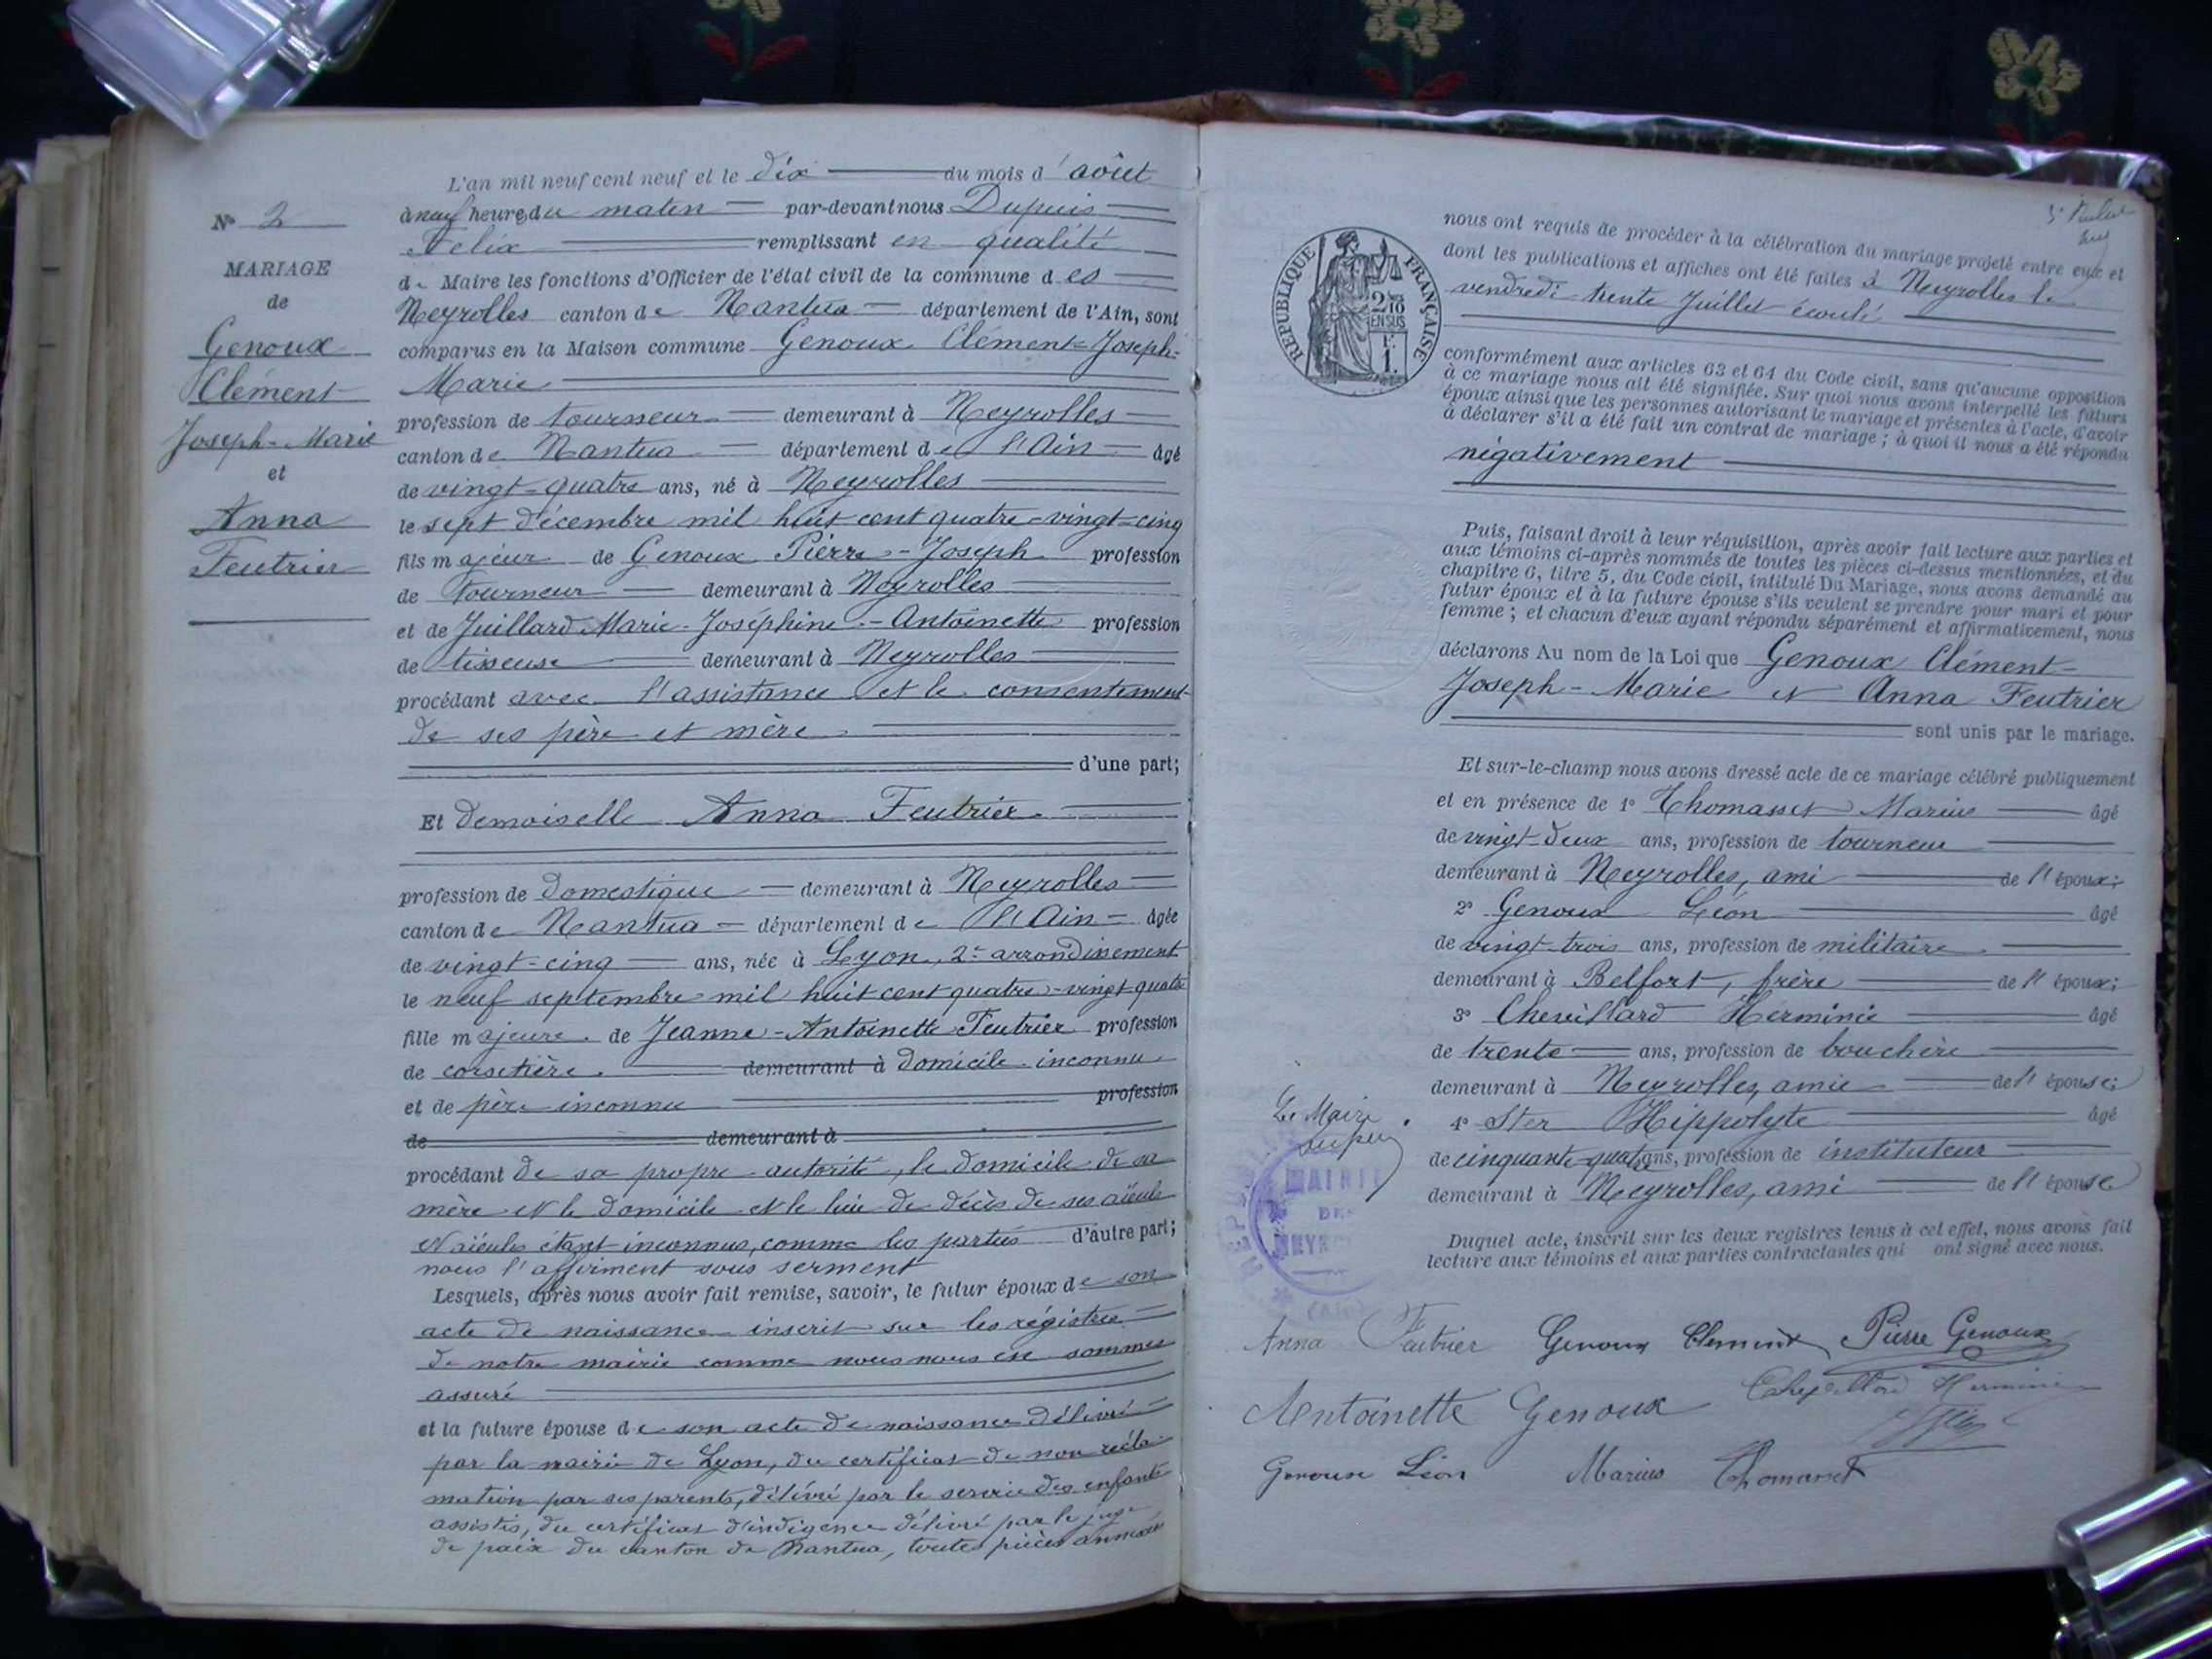 L'an mil neuf cent neuf et le dix du mois d'août
N° 2
à neuf heures du matin par-devant nous Dupuis
Félix remplissant en qualité
MARIAGE
de Maire les fonctions d'Officier de l'état civil de la commune des
de
Neyrolles canton de Nantua département de l'Ain, sont
Genoux
comparus en la Maison commune Genoux Clément-Joseph-
Clément
Marie
profession de tourneur demeurant à Neyrolles
Joseph-Marie
canton de Nantua département de l'Ain âgé
et
de vingt-quatre ans, né à Neyrolles
Anna
le sept décembre mil huit cent quatre-vingt-cinq
Feutrier
fils majeur de Genoux Pierre-Joseph profession
de tourneur demeurant à Neyrolles
et de Juillard Marie-Joséphine-Antoinette profession
de tisseuse demeurant à Neyrolles
procédant avec l'assistance et le consentement
de ses père et mère
d'une part;
Et demoiselle Anna Feutrier
profession de domestique demeurant à Neyrolles
canton de Nantua département de l'Ain âgée
de vingt-cinq ans, née à Lyon, 2e arrondissement
le neuf septembre mil huit cent quatre-vingt-quatre
fille majeure de Jeanne-Antoinette Feutrier profession
de corsetière demeurant à domicile inconnu
et de père inconnu profession
de demeurant à
procédant de sa propre autorité, le domicile de sa
mère et le domicile et le lieu de décès de ses aïeuls
et aïeules étant inconnus, comme les parties d'autre part;
nous l'affirment sous serment
Lesquels, après nous avoir fait remise, savoir, le futur époux de son
acte de naissance inscrit sur les régistres
de notre mairie comme nous nous en sommes
assuré
et la future épouse de son acte de naissance délivré
par la mairie de Lyon, du certificat de non récla-
mation par ses parents, délivré par le service des enfants
assistés, du certificat d'indigence délivré par le juge
de paix du canton de Nantua, toutes pièces annexées
nous ont requis de procéder à la célébration du mariage projeté entre eux et
dont les publications et affiches ont été faites à Neyrolles le
vendredi trente Juillet écoulé
RÉPUBLIQUE FRANÇAISE
2/10
EN SUS
1.
conformément aux articles 63 et 64 du Code civil, sans qu'aucune opposition
à ce mariage nous ait été signifiée. Sur quoi nous avons interpellé les futurs
époux ainsi que les personnes autorisant le mariage et présentes à l'acte, d'avoir
à déclarer s'il a été fait un contrat de mariage; à quoi il nous a été répondu
négativement
Puis, faisant droit à leur réquisition, après avoir fait lecture aux parties et
aux témoins ci-après nommés de toutes les pièces ci-dessus mentionnées, et du
chapitre 6, titre 5, du Code civil, intitulé Du Mariage, nous avons demandé au
futur époux et à la future épouse s'ils veulent se prendre pour mari et pour
femme; et chacun d'eux ayant répondu séparément et affirmativement, nous
déclarons Au nom de la Loi que Genoux Clément-
Joseph-Marie et Anna Feutrier
sont unis par le mariage.
Et sur-le-champ nous avons dressé acte de ce mariage célébré publiquement
et en présence de 1° Thomasset Marius âgé
de vingt-deux ans, profession de tourneur
demeurant à Neyrolles, ami de l'époux;
2° Genoux Léon âgé
de vingt-trois ans, profession de militaire
demeurant à Belfort, frère de l'époux;
3° Chevillard Herminie âgé
de trente ans, profession de bouchère
demeurant à Neyrolles, amie de l'épouse;
4° Ster Hippolyte âgé
de cinquante-quatre ans, profession de instituteur
demeurant à Neyrolles, ami de l'épouse
Le Maire
MAIRIE
DES
Duquel acte, inscrit sur les deux registres tenus à cet effet, nous avons fait
lecture aux témoins et aux parties contractantes qui ont signé avec nous.
Anna Feutrier Genoux Clement Pierre Genoux
Antoinette Genoux Chevillard Herminie
Genoux Léon Marius Thomasset